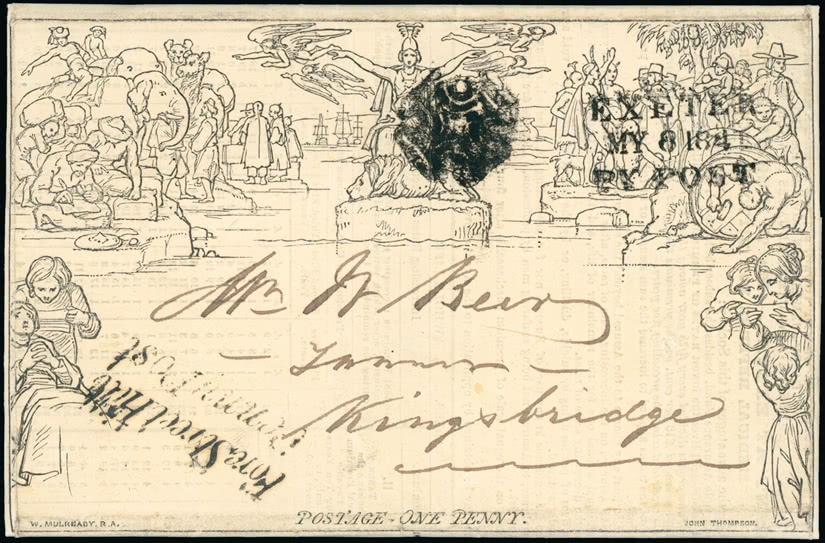 EXETER
MY 8 184
PY POST
Mr W Beer
Tanner
Kingsbridge
Fore Street Hill
Penny Post
POSTAGE - ONE PENNY.
W. MULREADY. R.A.
JOHN THOMPSON.